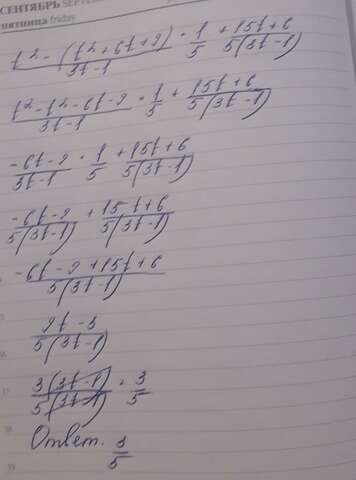 СЕНТЯБРЬ SEPTE
пятница friday
t² - (t² + 6t + 9) / 3t - 1 · 1/5 + 15t + 6 / 5(3t - 1)
t² - t² - 6t - 9 / 3t - 1 · 1/5 + 15t + 6 / 5(3t - 1)
-6t - 9 / 3t - 1 · 1/5 + 15t + 6 / 5(3t - 1)
-6t - 9 / 5(3t - 1) + 15t + 6 / 5(3t - 1)
-6t - 9 + 15t + 6 / 5(3t - 1)
9t - 3 / 5(3t - 1)
3(3t - 1) / 5(3t - 1) = 3/5
Ответ. 3/5